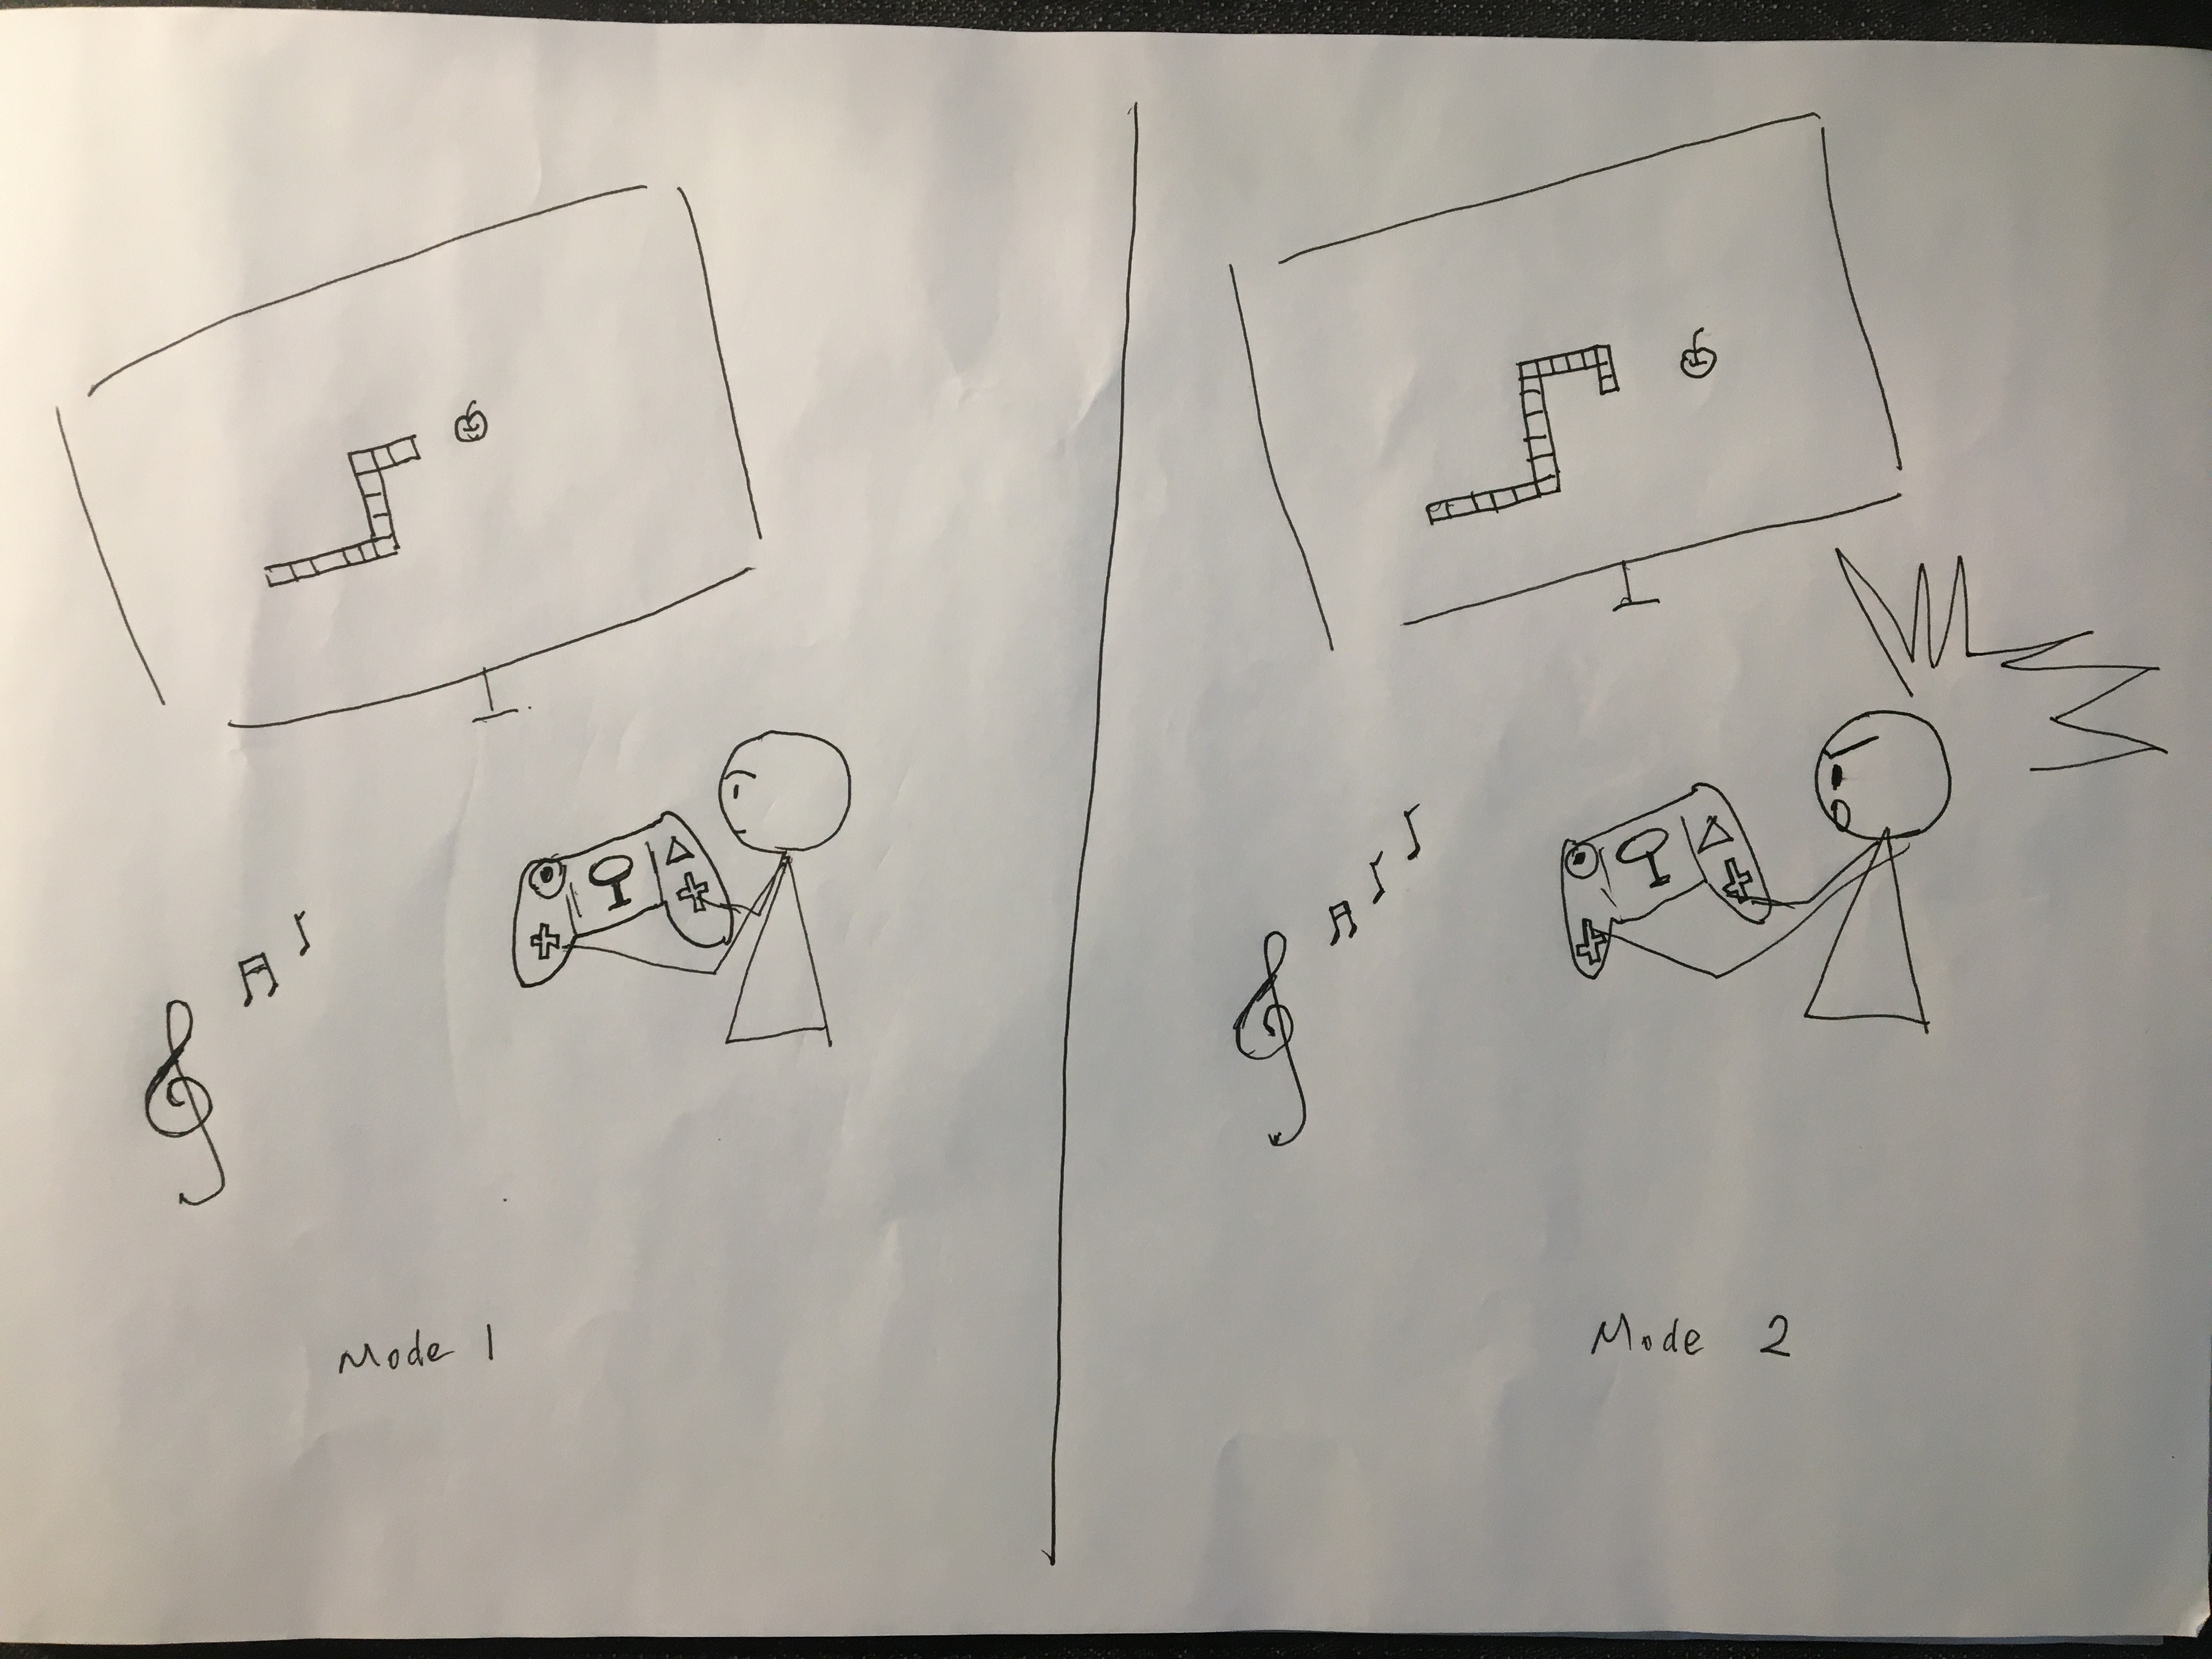 Mode 1
Mode 2